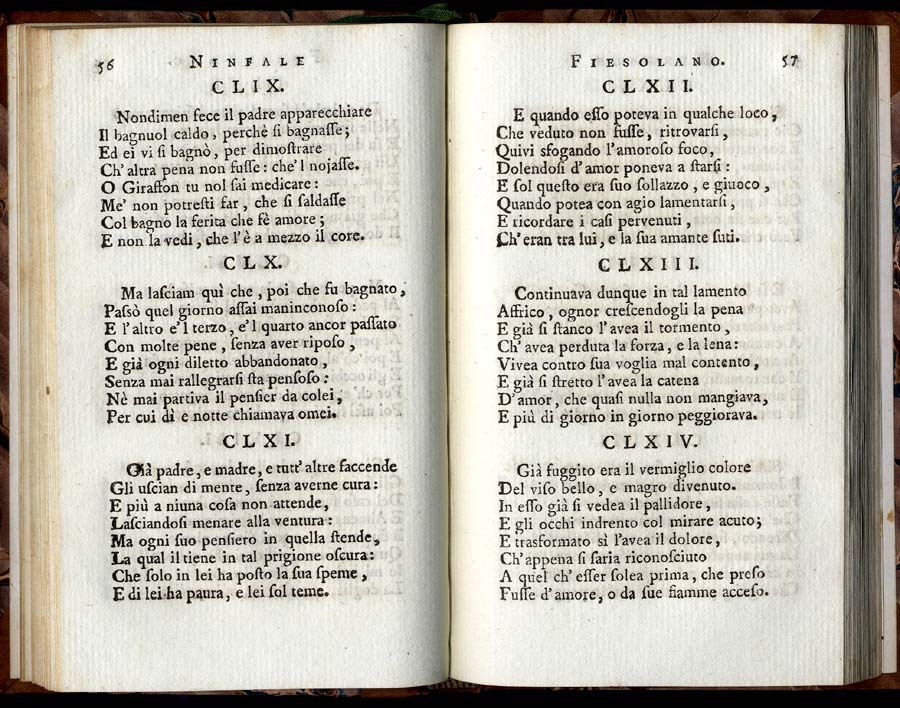 56 NINFALE
CLIX.
Nondimen fece il padre apparecchiare
Il bagnuol caldo, perchè ſi bagnaſſe;
Ed ei vi ſi bagnò, per dimoſtrare
Ch' altra pena non fuſſe: che'l nojaſſe.
O Giraffon tu nol ſai medicare:
Me' non potreſti far, che ſi ſaldaſſe
Col bagno la ferita che fè amore;
E non la vedi, che l'è a mezzo il core.
CLX.
Ma laſciam quì che, poi che fu bagnato,
Paſsò quel giorno aſſai maninconoſo:
E l'altro e'l terzo, e'l quarto ancor paſſato
Con molte pene, ſenza aver ripoſo,
E già ogni diletto abbandonato,
Senza mai rallegrarſi ſta penſoſo:
Nè mai partiva il penſier da colei,
Per cui dì e notte chiamava omei.
CLXI.
Già padre, e madre, e tutt' altre faccende
Gli uſcian di mente, ſenza averne cura:
E più a niuna coſa non attende,
Laſciandoſi menare alla ventura:
Ma ogni ſuo penſiero in quella ſtende,
La qual il tiene in tal prigione oſcura:
Che ſolo in lei ha poſto la ſua ſpeme,
E di lei ha paura, e lei ſol teme.
FIESOLANO. 57
CLXII.
E quando eſſo poteva in qualche loco,
Che veduto non fuſſe, ritrovarſi,
Quivi sfogando l'amoroſo foco,
Dolendoſi d'amor poneva a ſtarſi:
E ſol queſto era ſuo ſollazzo, e giuoco,
Quando potea con agio lamentarſi,
E ricordare i caſi pervenuti,
Ch' eran tra lui, e la ſua amante ſuti.
CLXIII.
Continuava dunque in tal lamento
Affrico, ognor creſcendogli la pena
E già ſi ſtanco l'avea il tormento,
Ch' avea perduta la forza, e la lena:
Vivea contro ſua voglia mal contento,
E già ſi ſtretto l'avea la catena
D'amor, che quaſi nulla non mangiava,
E più di giorno in giorno peggiorava.
CLXIV.
Già fuggito era il vermiglio colore
Del viſo bello, e magro divenuto.
In eſſo già ſi vedea il pallidore,
E gli occhi indrento col mirare acuto;
E trasformato sì l'avea il dolore,
Ch'appena ſi ſaria riconoſciuto
A quel ch' eſſer ſolea prima, che preſo
Fuſſe d'amore, o da ſue fiamme acceſo.